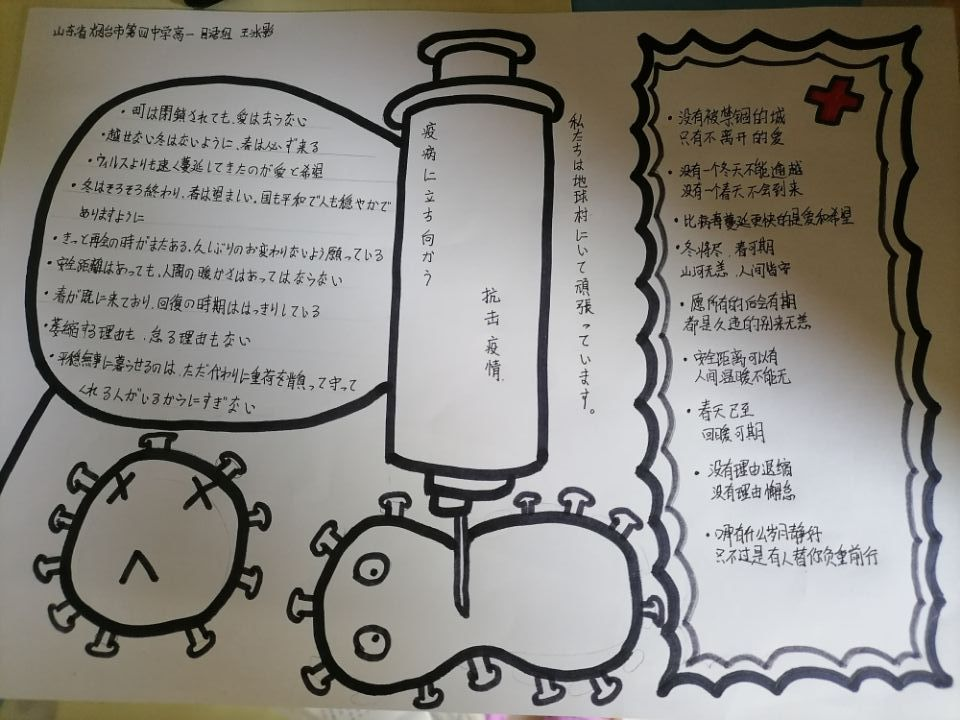 山东省烟台市第四中学高一 日语组 王冰影
・町は閉鎖されても、愛は去らない
・越せない冬はないように、春は必ず来る
・ウィルスよりも速く蔓延してきたのが愛と希望
・冬はそろそろ終わり、春は望ましい、国も平和で人も穏やかで
ありますように
・きっと再会の時がまだある、久しぶりのお変わりないよう願っている
・安全距離はあっても、人間の暖かさはあってはならない
・春が既に来ており、回復の時期ははっきりしている
・萎縮する理由も、怠る理由もない
・平穏無事に暮らせるのは、ただ代わりに重荷を背負って守って
くれる人がいるからにすぎない
疫病に立ち向かう
抗击疫情
私たちは地球村にいて頑張っています。
・没有被禁锢的城
只有不离开的爱
・没有一个冬天不能逾越
没有一个春天不会到来
・比病毒蔓延更快的是爱和希望
・冬将尽，春可期
山河无恙，人间皆安
・愿所有的后会有期
都是久违的别来无恙
・安全距离可以有
人间温暖不能无
・春天已至
回暖可期
・没有理由退缩
没有理由懈怠
・哪有什么岁月静好
只不过是有人替你负重前行